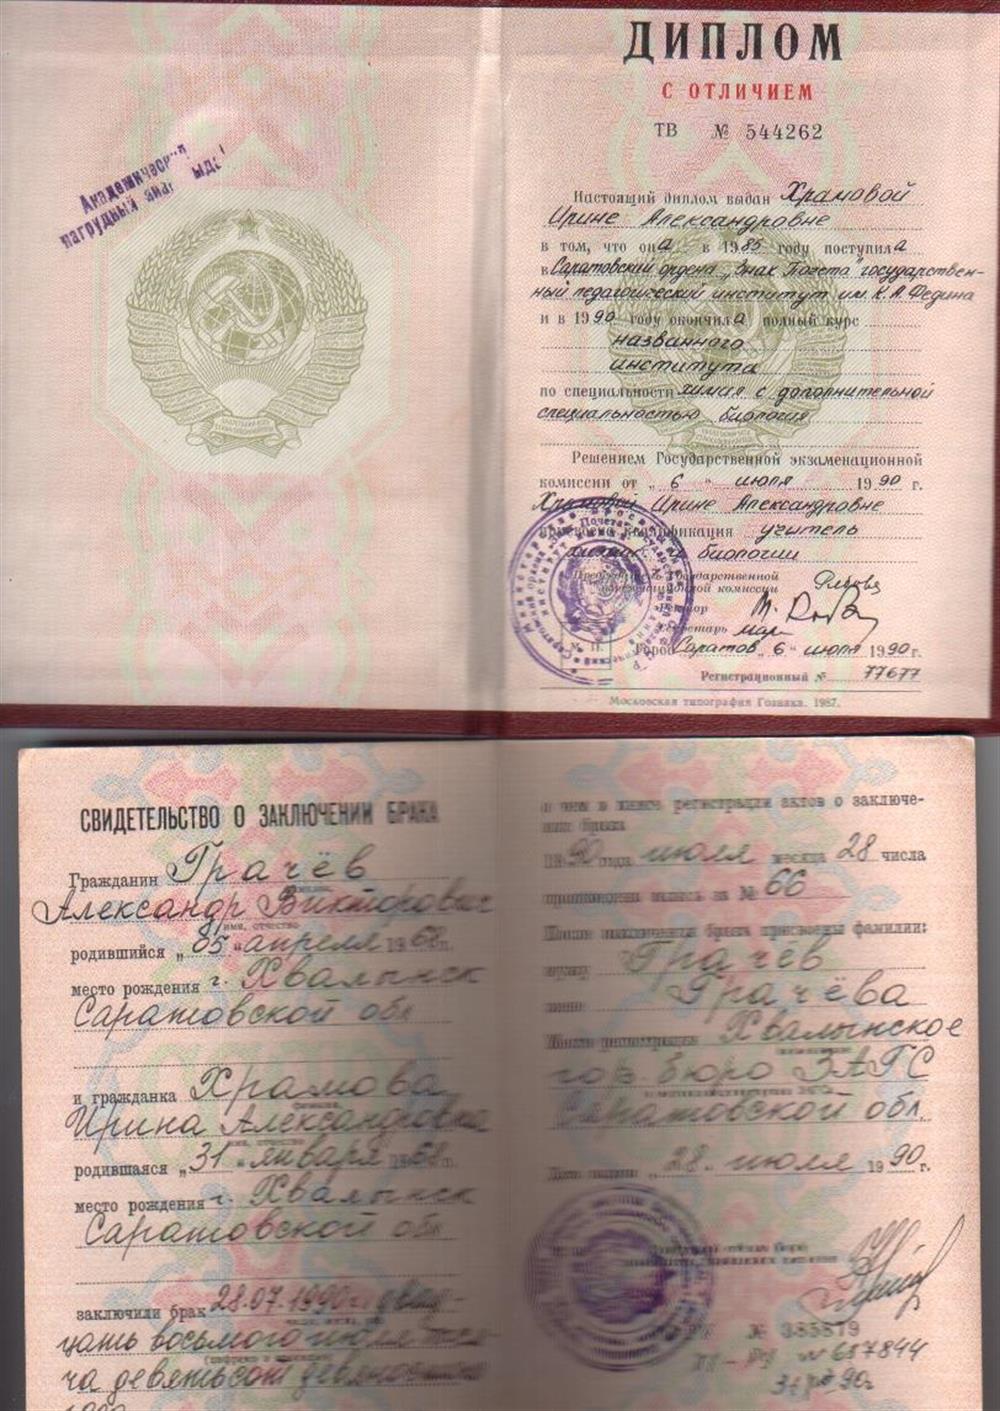 Академический
нагрудный знак выдан
ДИПЛОМ
С ОТЛИЧИЕМ
ТВ № 544262
Настоящий диплом выдан Храмовой
Ирине Александровне
в том, что она в 1985 году поступила
в Саратовский ордена „Знак Почета" государствен-
ный педагогический институт им. К. А. Федина
и в 1990 году окончила полный курс
названного
института
по специальности химия с дополнительной
специальностью биология
Решением Государственной экзаменационной
комиссии от „6" июля 1990 г.
Храмовой Ирине Александровне
присвоена квалификация учитель
химии и биологии
Председатель Государственной
экзаменационной комиссии
Ректор
Секретарь
М. П. Город Саратов „6" июля 1990 г.
Регистрационный № 77677
Московская типография Гознака. 1987.
СВИДЕТЕЛЬСТВО О ЗАКЛЮЧЕНИИ БРАКА
Гражданин Грачёв
Александр Викторович
имя, отчество
родившийся „05" апреля 1968 г.
место рождения г. Хвалынск
Саратовской обл
и гражданка Храмова
фамилия
Ирина Александровна
имя, отчество
родившаяся „31" января 1968 г.
место рождения г. Хвалынск
Саратовской обл
заключили брак 28.07.1990 г. двад-
цать восьмого июля тыся-
ча девятьсот девяностого
года
о чем в книге регистрации актов о заключе-
нии брака
1990 года июля месяца 28 числа
произведена запись за № 66
После заключения брака присвоены фамилии:
мужу Грачёв
жене Грачёва
Место регистрации Хвалынское
гор. бюро ЗАГС
Саратовской обл.
Дата выдачи „28" июля 1990 г.
№ 385879
№ 657844